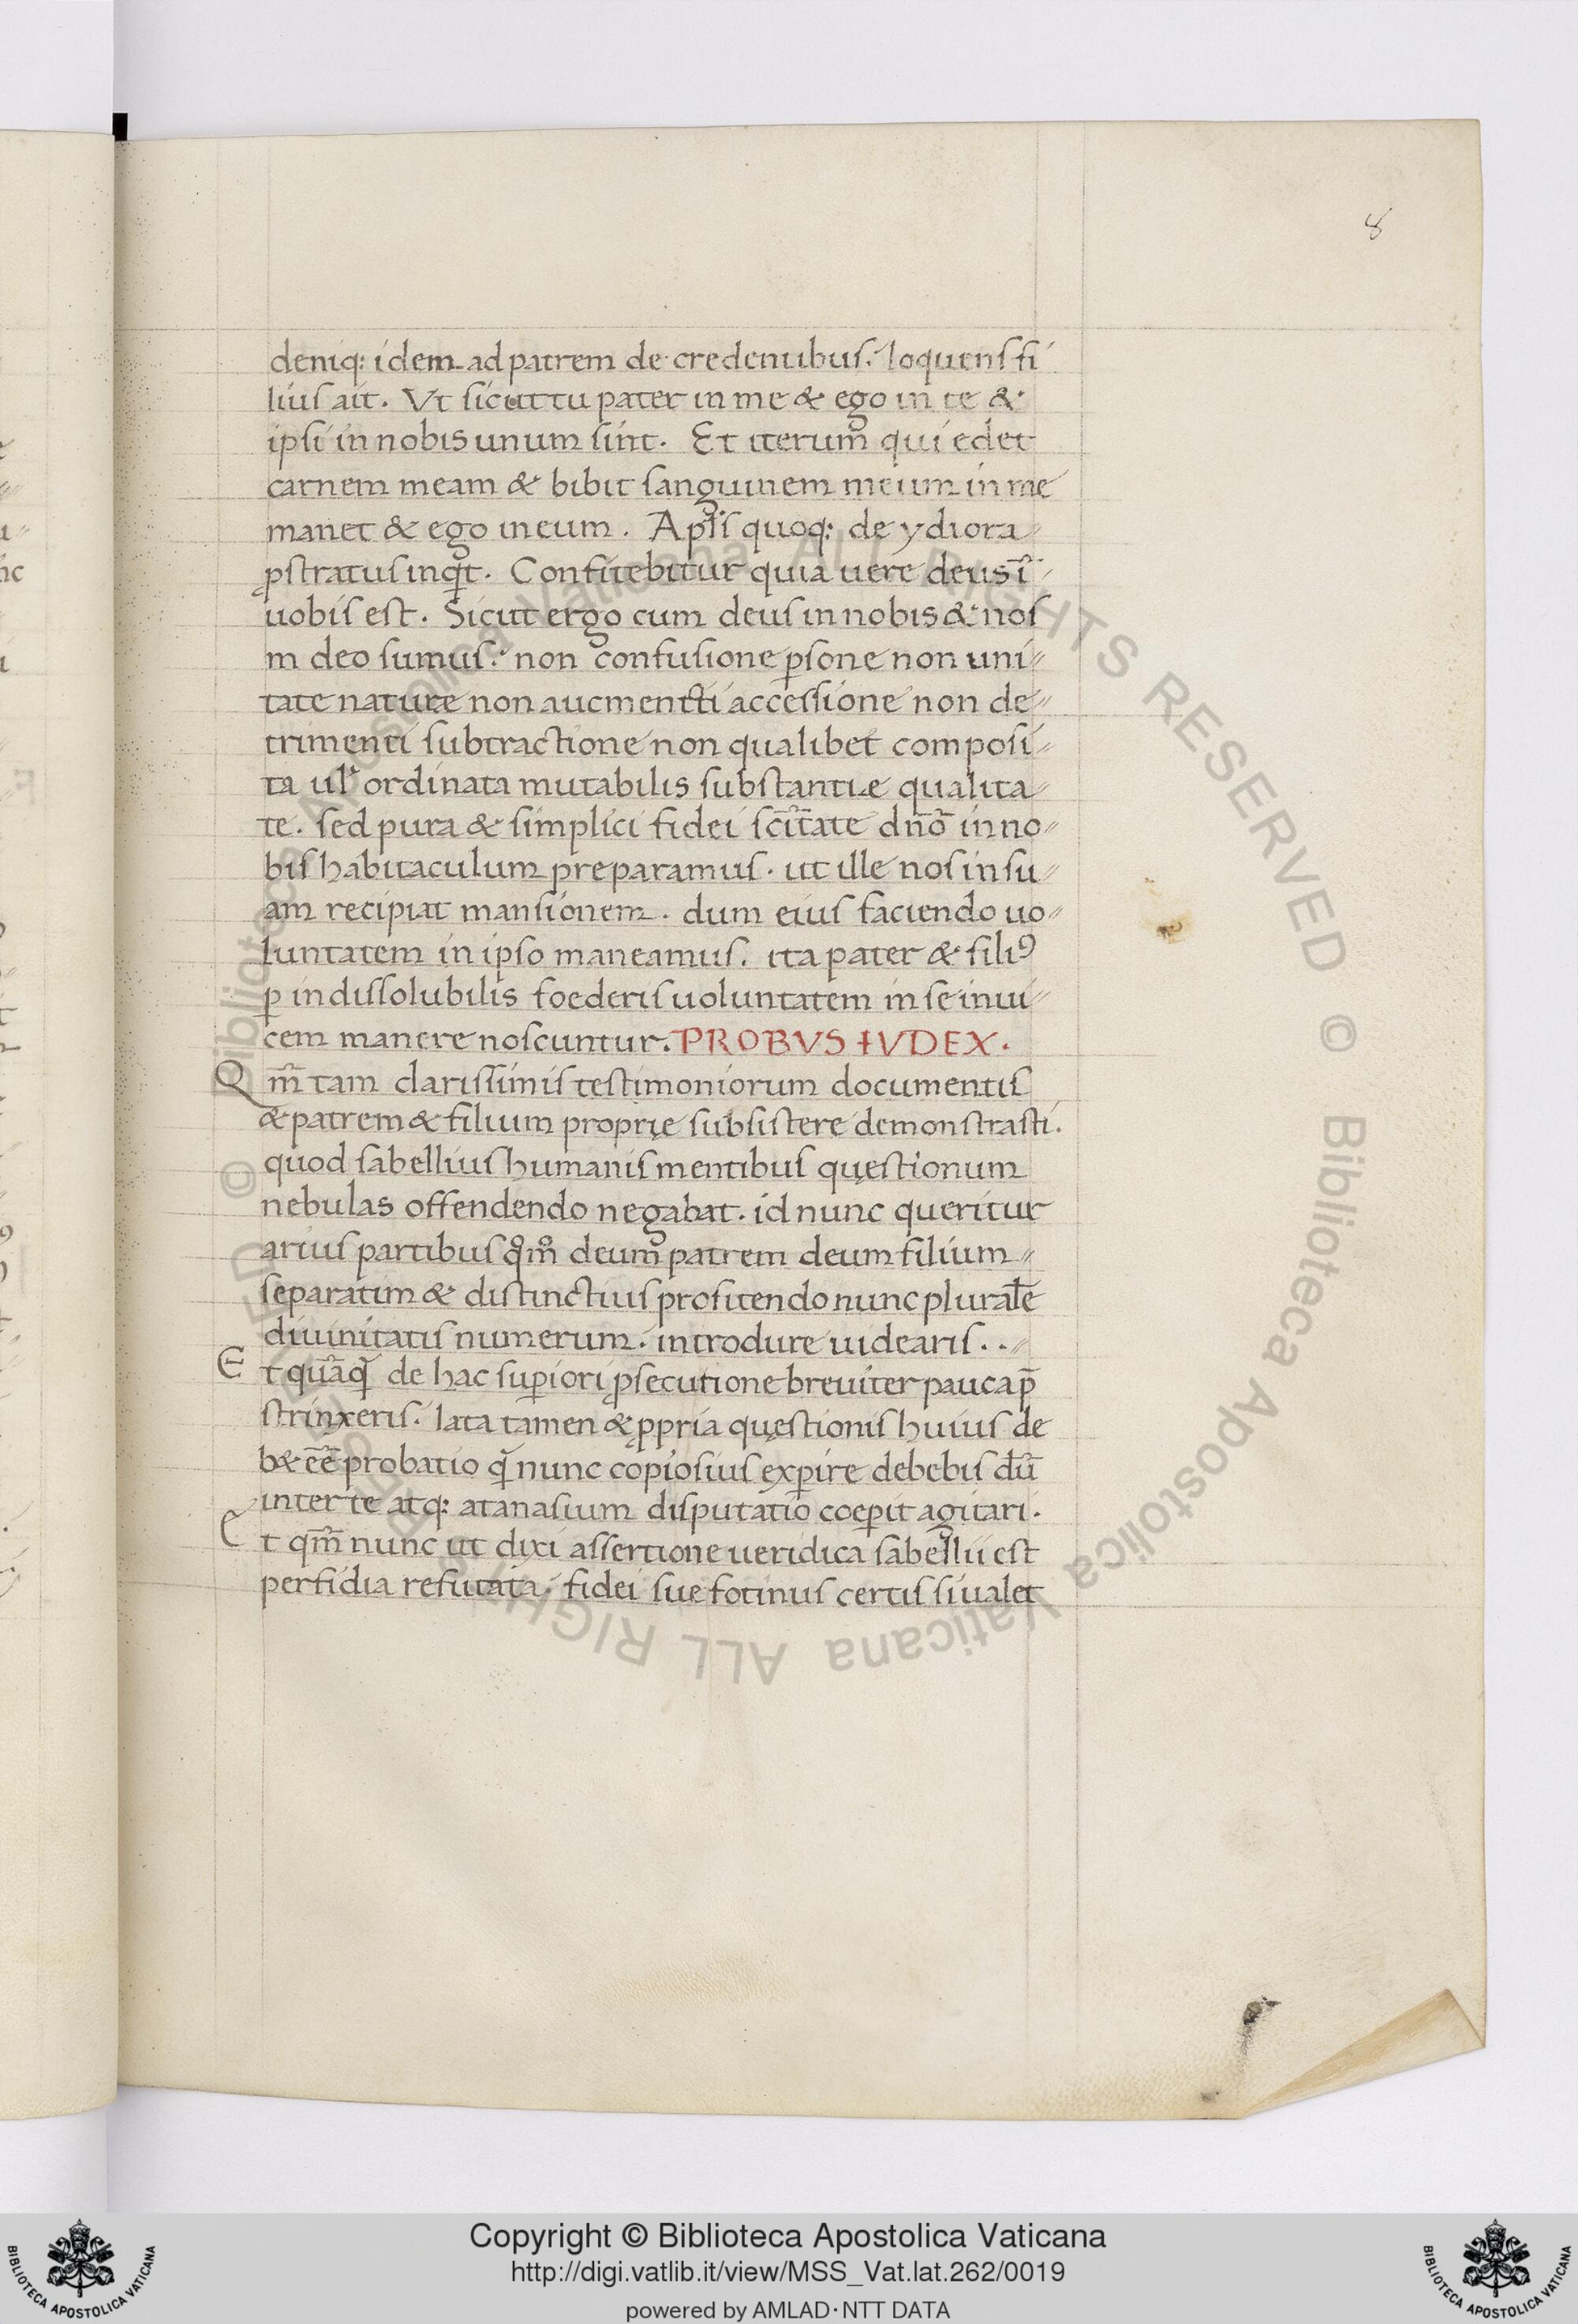 8
deniq: idem ad patrem de credentibus. loquens fi
lius ait. Vt sicut tu pater in me & ego in te &
ipsi in nobis unum sint. Et iterum qui edet
carnem meam & bibit sanguinem meum in me
manet & ego in eum. Apl̃s quoq: de ydiota
ꝓstratus inq̇t. Confitebitur quia uere deus ī
uobis est. Sicut ergo cum deus in nobis & nos
in deo sumus. non confusione ꝑsone non uni
tate nature non aucmenti accessione non de
trimenti subtractione non qualibet composi
ta ul' ordinata mutabilis substantie qualita
te. sed pura & simplici fidei sc̄itate dn̄o in no
bis habitaculum preparamus. ut ille nos in su
am recipiat mansionem. dum eius faciendo uo
luntatem in ipso maneamus. ita pater & filiꝰ
ꝑ indissolubilis foederis uoluntatem in se inui
cem manere noscuntur. PROBVS IVDEX.
Qm̄ tam clarissimis testimoniorum documentis
& patrem & filium proprię subsistere demonstrasti.
quod sabellius humanis mentibus quęstionum
nebulas offendendo negabat. id nunc queritur
arius partibus qͦmͦ deum patrem deum filium
separatim & distinctius profitendo nunc plural̄e
diuinitatis numerum. introdure uidearis..
Et quāq̃ de hac suꝑiori ꝓsecutione breuiter pauca p̄
strinxeris. lata tamen & ꝓpria quęstionis huius de
b& ēē probatio q̃ nunc copiosius exꝑire debebis dū
inter te atq: atanasium disputatio coeꝑit agitari.
Et qm̄ nunc ut dixi assertione ueridica sabellii est
perfidia refutata, fidei sue fotinus certis si ualet
© Biblioteca Apostolica Vaticana ALL RIGHTS RESERVED © Biblioteca Apostolica Vaticana ALL RIGHTS RESERVED
Copyright © Biblioteca Apostolica Vaticana
http://digi.vatlib.it/view/MSS_Vat.lat.262/0019
powered by AMLAD·NTT DATA
BIBLIOTECA APOSTOLICA VATICANA
BIBLIOTECA APOSTOLICA VATICANA